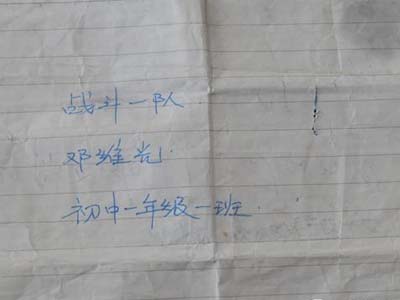 战斗一队
邓维光
初中一年级一班